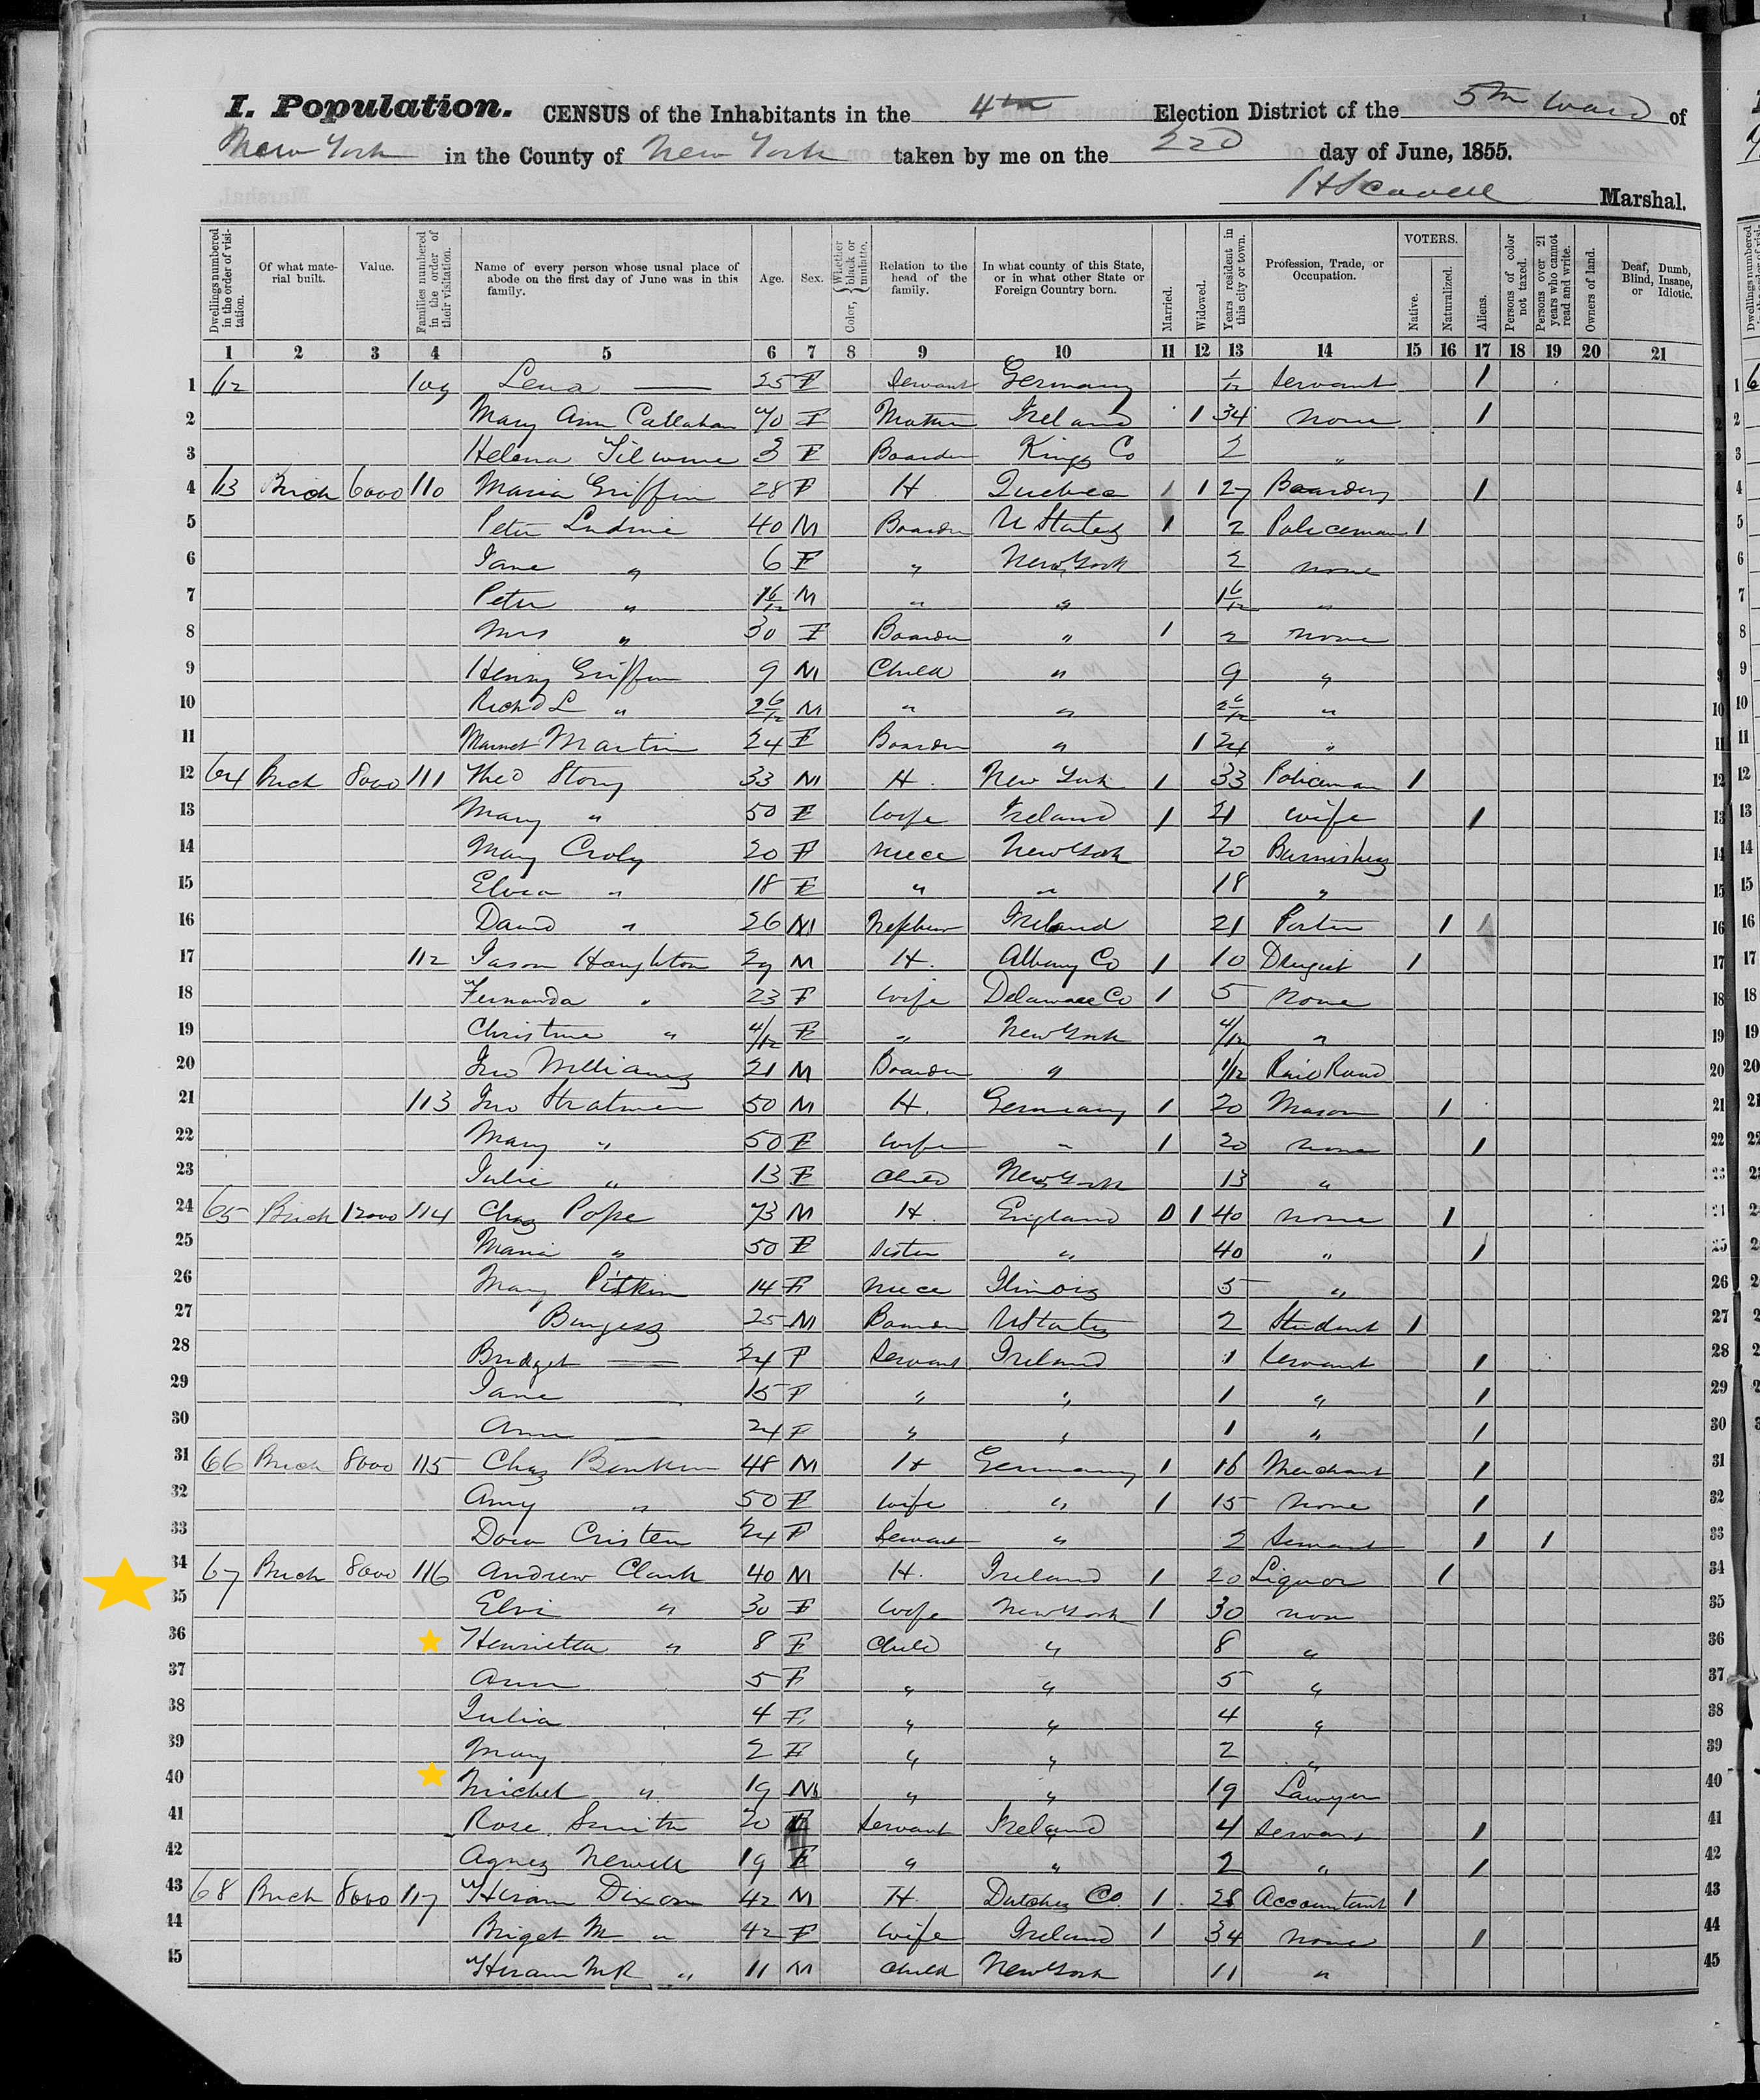 I. Population. CENSUS of the Inhabitants in the 4th Election District of the 5th Ward of
New York in the County of New York taken by me on the 22d day of June, 1855.
Marshal.
Dwellings numbered in the order of visitation. Of what material built. Value. Families numbered in the order of their visitation. Name of every person whose usual place of abode on the first day of June was in this family. Age. Sex. Color, { Whether black or mulatto. Relation to the head of the family. In what county of this State, or in what other State or Foreign Country born. Married. Widowed. Years resident in this city or town. Profession, Trade, or Occupation. VOTERS. Native. Naturalized. Aliens. Persons of color not taxed. Persons over 21 years who cannot read and write. Owners of land. Deaf, Dumb, Blind, Insane, or Idiotic.
1 2 3 4 5 6 7 8 9 10 11 12 13 14 15 16 17 18 19 20 21
1 62 109 Lena — 25 F Servant Germany 1/12 Servant 1 1
2 Mary Ann Callahan 70 F Mother Ireland 1 34 None 1 2
3 Helena 3 F Boarder Kings Co 2 " 3
4 63 Brick 6000 110 Maria Griffin 28 F H Quebec 1 1 27 Boarders 1 4
5 Peter 40 M Boarder U States 1 2 Policeman 1 5
6 Jane " 6 F " New York 2 none 6
7 Peter " 1 6/12 M " " 1 6/12 " 7
8 Mrs " 30 F Boarder " 1 2 none 8
9 Henry Griffin 9 M Child " 9 " 9
10 Richd L " 2 6/12 M " " 2 6/12 " 10
11 Martin 24 F Boarder " 1 24 " 11
12 64 Brick 8000 111 Theo Story 33 M H. New York 1 33 Policeman 1 12
13 Mary " 50 F Wife Ireland 1 21 wife 1 13
14 Mary Croly 20 F Niece New York 20 Burnisher 14
15 " 18 F " " 18 " 15
16 David " 26 M Nephew Ireland 21 Porter 1 16
17 112 Jason Houghton 29 M H. Albany Co 1 10 Drugist 1 17
18 Fernanda " 23 F Wife Delaware Co 1 5 None 18
19 Christine " 4/12 F " New York 4/12 " 19
20 Jno Williams 21 M Boarder " 1/12 Rail Road 20
21 113 Jno 50 M H. Germany 1 20 Mason 1 21
22 Mary " 50 F Wife " 1 20 none 1 22
23 Julie " 13 F Child New York 13 " 23
24 65 Brick 12000 114 Chas Pope 73 M H. England 1 40 none 1 24
25 Maria " 50 F Sister " 40 " 1 25
26 Mary Pitkin 14 F Niece Ilinois 5 " 26
27 Burgess 25 M Boarder U States 2 Student 1 27
28 Bridget — 24 F Servant Ireland 1 Servant 1 28
29 Jane — 15 F " " 1 " 1 29
30 Ann — 24 F " " 1 " 1 30
31 66 Brick 8000 115 Chas 48 M H Germany 1 16 Merchant 1 31
32 Amy " 50 F Wife " 1 15 None 1 32
33 Cristen 24 F Servant " 2 Servant 1 1 33
34 67 Brick 8000 116 Andrew Clark 40 M H. Ireland 1 20 Liquor 1 34
35 " 30 F Wife New York 1 30 non 35
36 Henrietta " 8 F Child " 8 " 36
37 Ann 5 F " " 5 " 37
38 Julia 4 F " " 4 " 38
39 Mary 2 F " " 2 " 39
40 Michel " 19 M " " 19 Lawyer 40
41 Rose Smith 20 Servant Ireland 4 Servant 1 41
42 Agnes Newell 19 F " " 2 " 1 42
43 68 Brick 8000 117 Hiram Dixon 42 M H. Dutches Co. 1 28 Accountant 1 43
44 Briget M " 42 F Wife Ireland 1 34 None 1 44
45 Hiram McR " 11 M Child New York 11 " 45